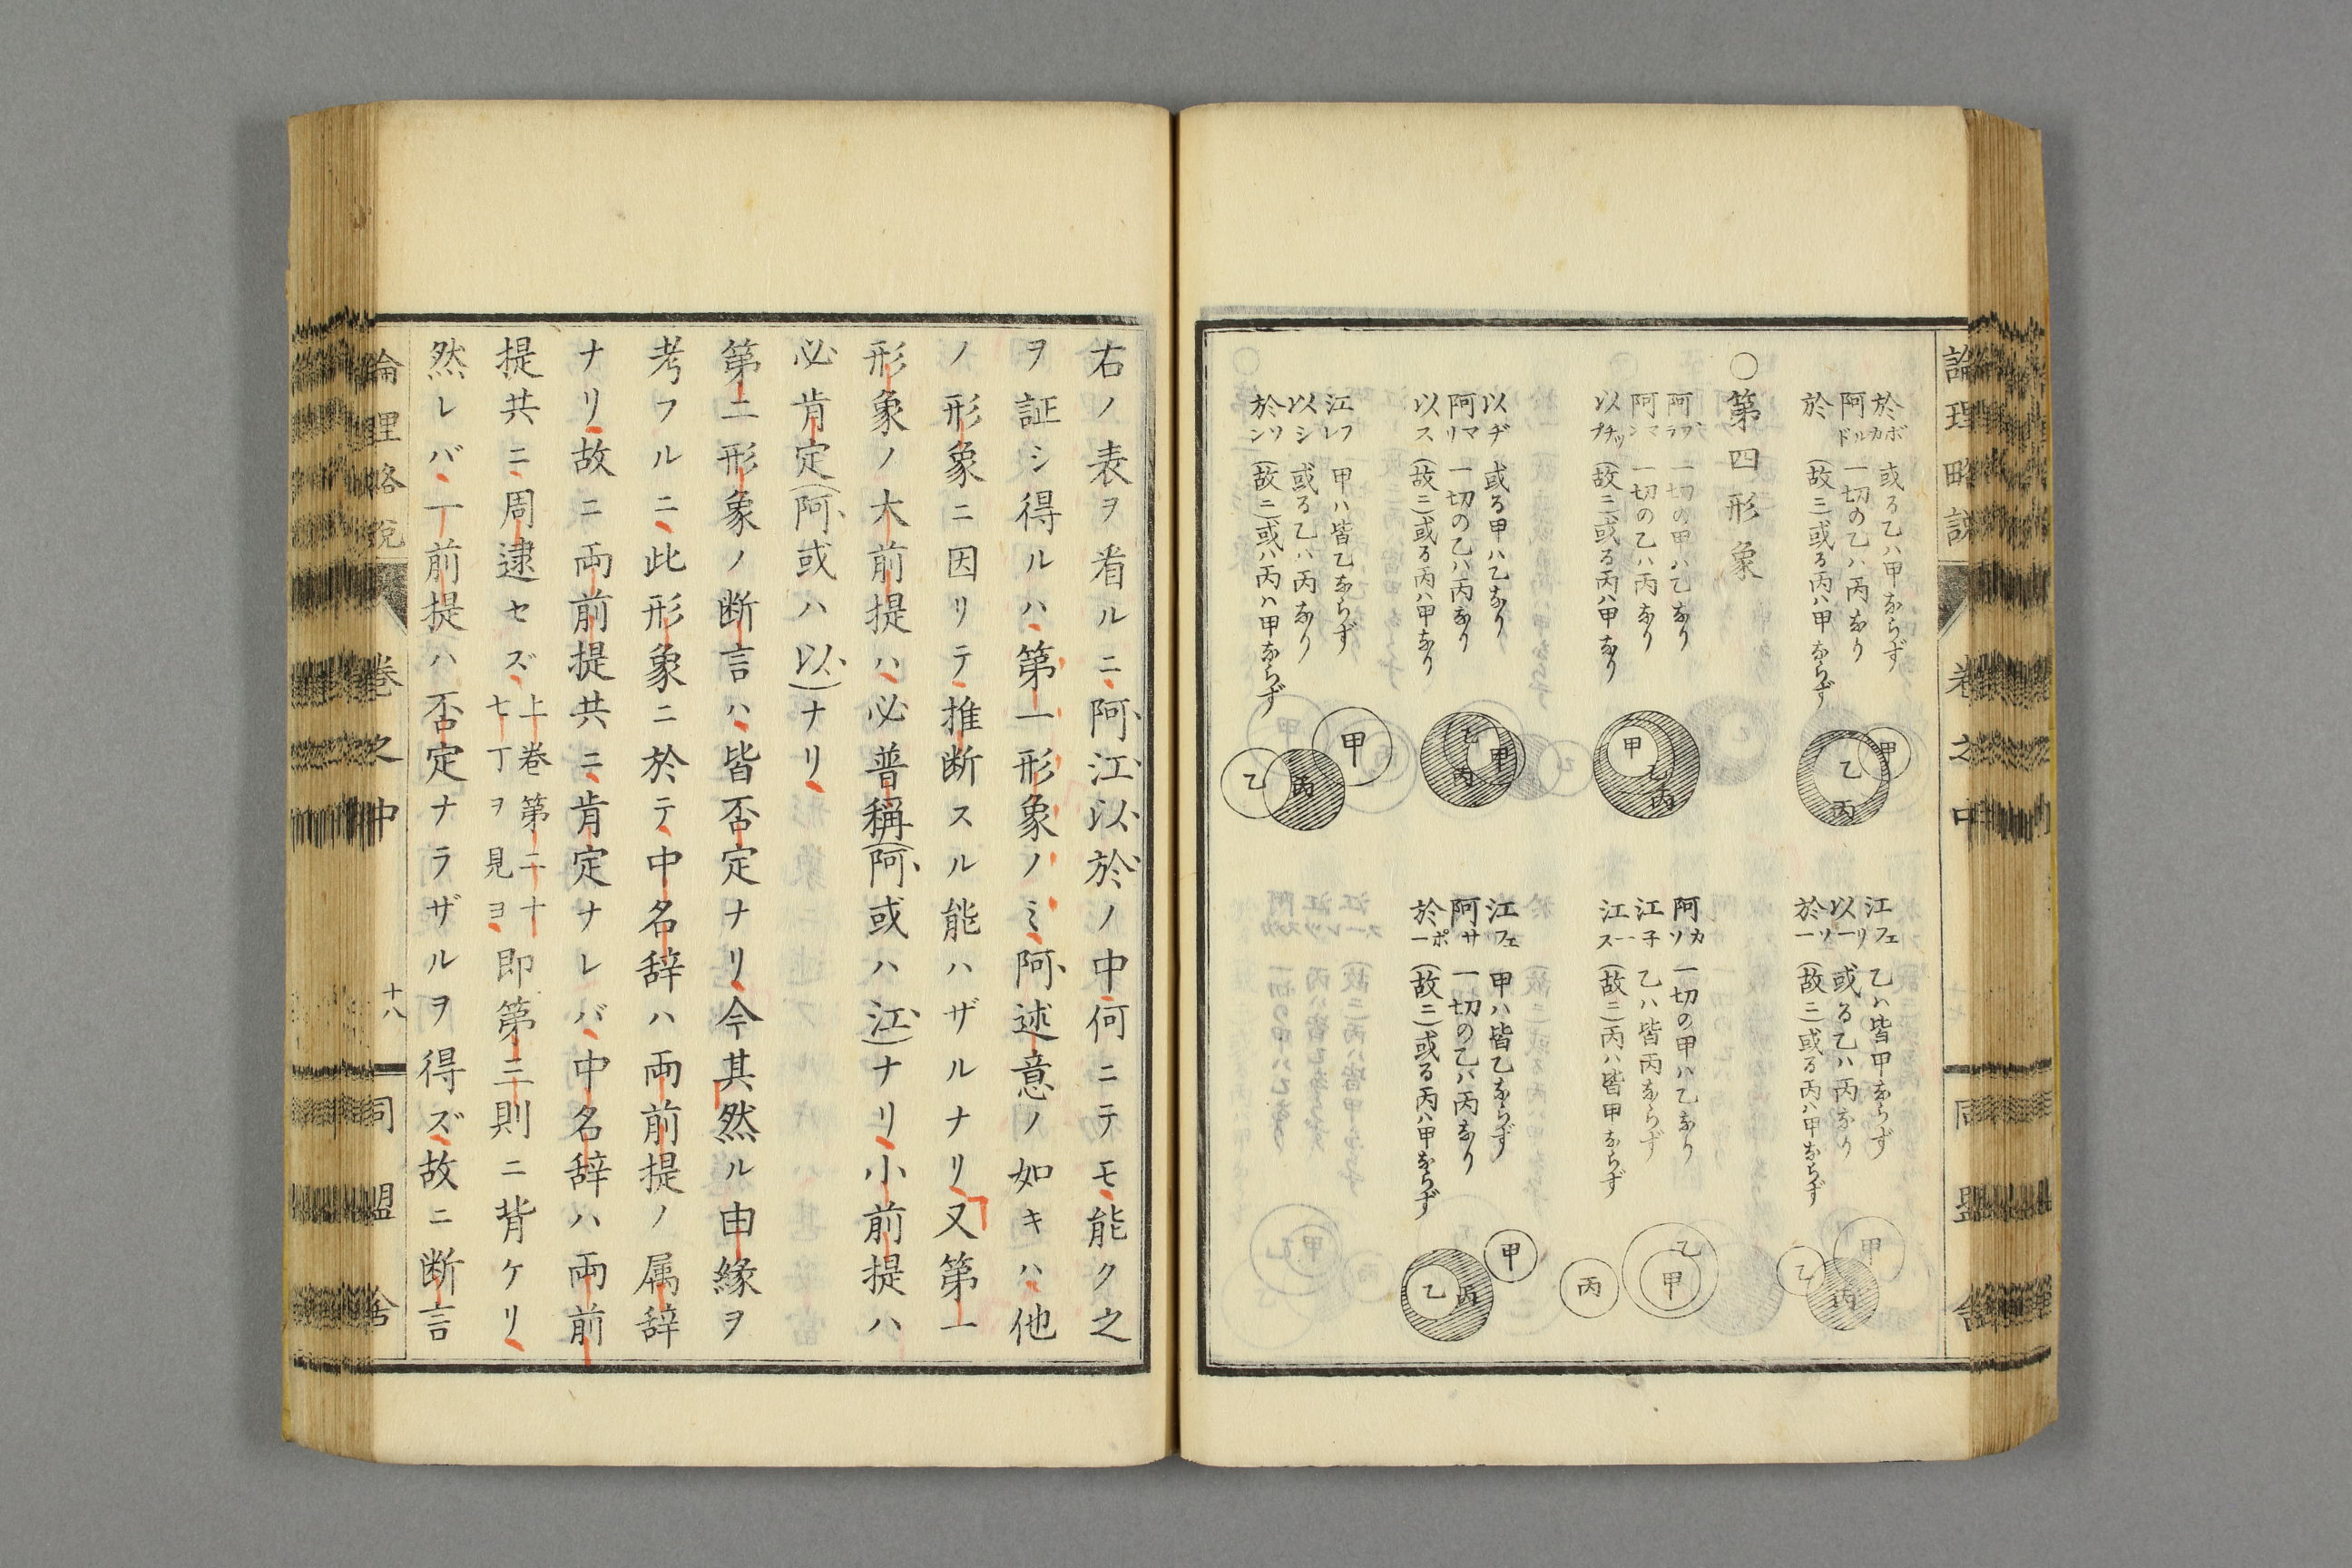 論理略説 卷之中 同盟舎
於ボカ 或る乙ハ甲ならず
阿ルド 一切の乙ハ丙なり
於 (故ニ)或る丙ハ甲ならず
甲
乙
丙
江フェ 乙ハ皆甲ならず
以リー 或る乙ハ丙なり
於ソー (故ニ)或る丙ハ甲ならず
甲
乙
丙
○第四形象
阿ブラ 一切の甲ハ乙なり
阿マン 一切の乙ハ丙なり
以チップ (故ニ)或る丙ハ甲なり
甲
乙
丙
阿カソ 一切の甲ハ乙なり
江子 乙ハ皆丙ならず
江ース (故ニ)丙ハ皆甲ならず
乙
甲
丙
以ヂ 或る甲ハ乙なり
阿マリ 一切の乙ハ丙なり
以ス (故ニ)或る丙ハ甲なり
乙
甲
丙
江フェ 甲ハ皆乙ならず
阿サ 一切の乙ハ丙なり
於ポー (故ニ)或る丙ハ甲ならず
甲
乙
丙
江フレ 甲ハ皆乙ならず
以シ 或る乙ハ丙なり
於ソン (故ニ)或ハ丙ハ甲ならず
甲
乙
丙
右ノ表ヲ看ルニ阿江以於ノ中何ニテモ能ク之
ヲ証シ得ルハ第一形象ノミ阿述意ノ如キハ他
ノ形象ニ因リテ推断スル能ハザルナリ又第一
形象ノ大前提ハ必普稱(阿或ハ江)ナリ小前提ハ
必肯定(阿或ハ以)ナリ
第二形象ノ断言ハ皆否定ナリ今其然ル由緣ヲ
考フルニ此形象ニ於テ中名辞ハ両前提ノ属辞
ナリ故ニ両前提共ニ肯定ナレバ中名辞ハ両前
提共ニ周逮セズ上巻第二十七丁ヲ見ヨ即第三則ニ背ケリ
然レバ一前提ハ否定ナラザルヲ得ズ故ニ断言
論理略説 卷之中 十八 同盟舎